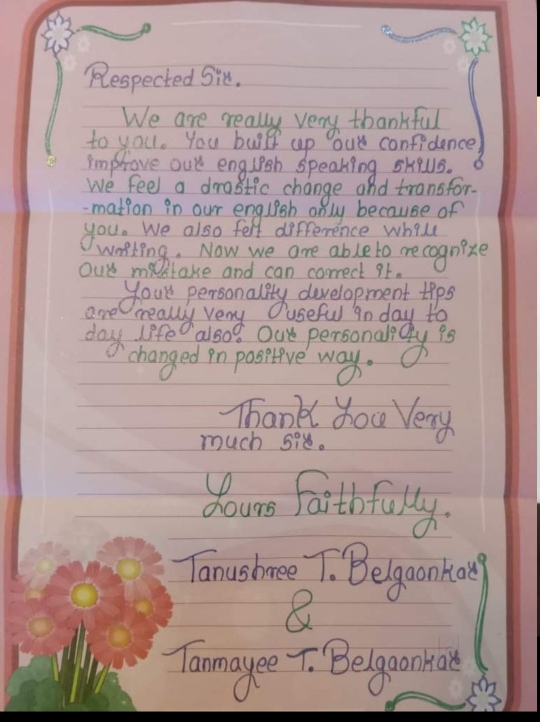 Respected Sir.
We are really very thankful
to you. You built up our confidence,
improve our english speaking skills.
We feel a drastic change and transfor-
-mation in our english only because of
you. We also felt difference while
writing. Now we are able to recognize
our mistake and can correct it.
Your personality development tips
are really very useful in day to
day life also. Our personality is
changed in positive way.
Thank You Very
much sir.
Yours Faithfully.
Tanushree T. Belgaonkar
&
Tanmayee T. Belgaonkar